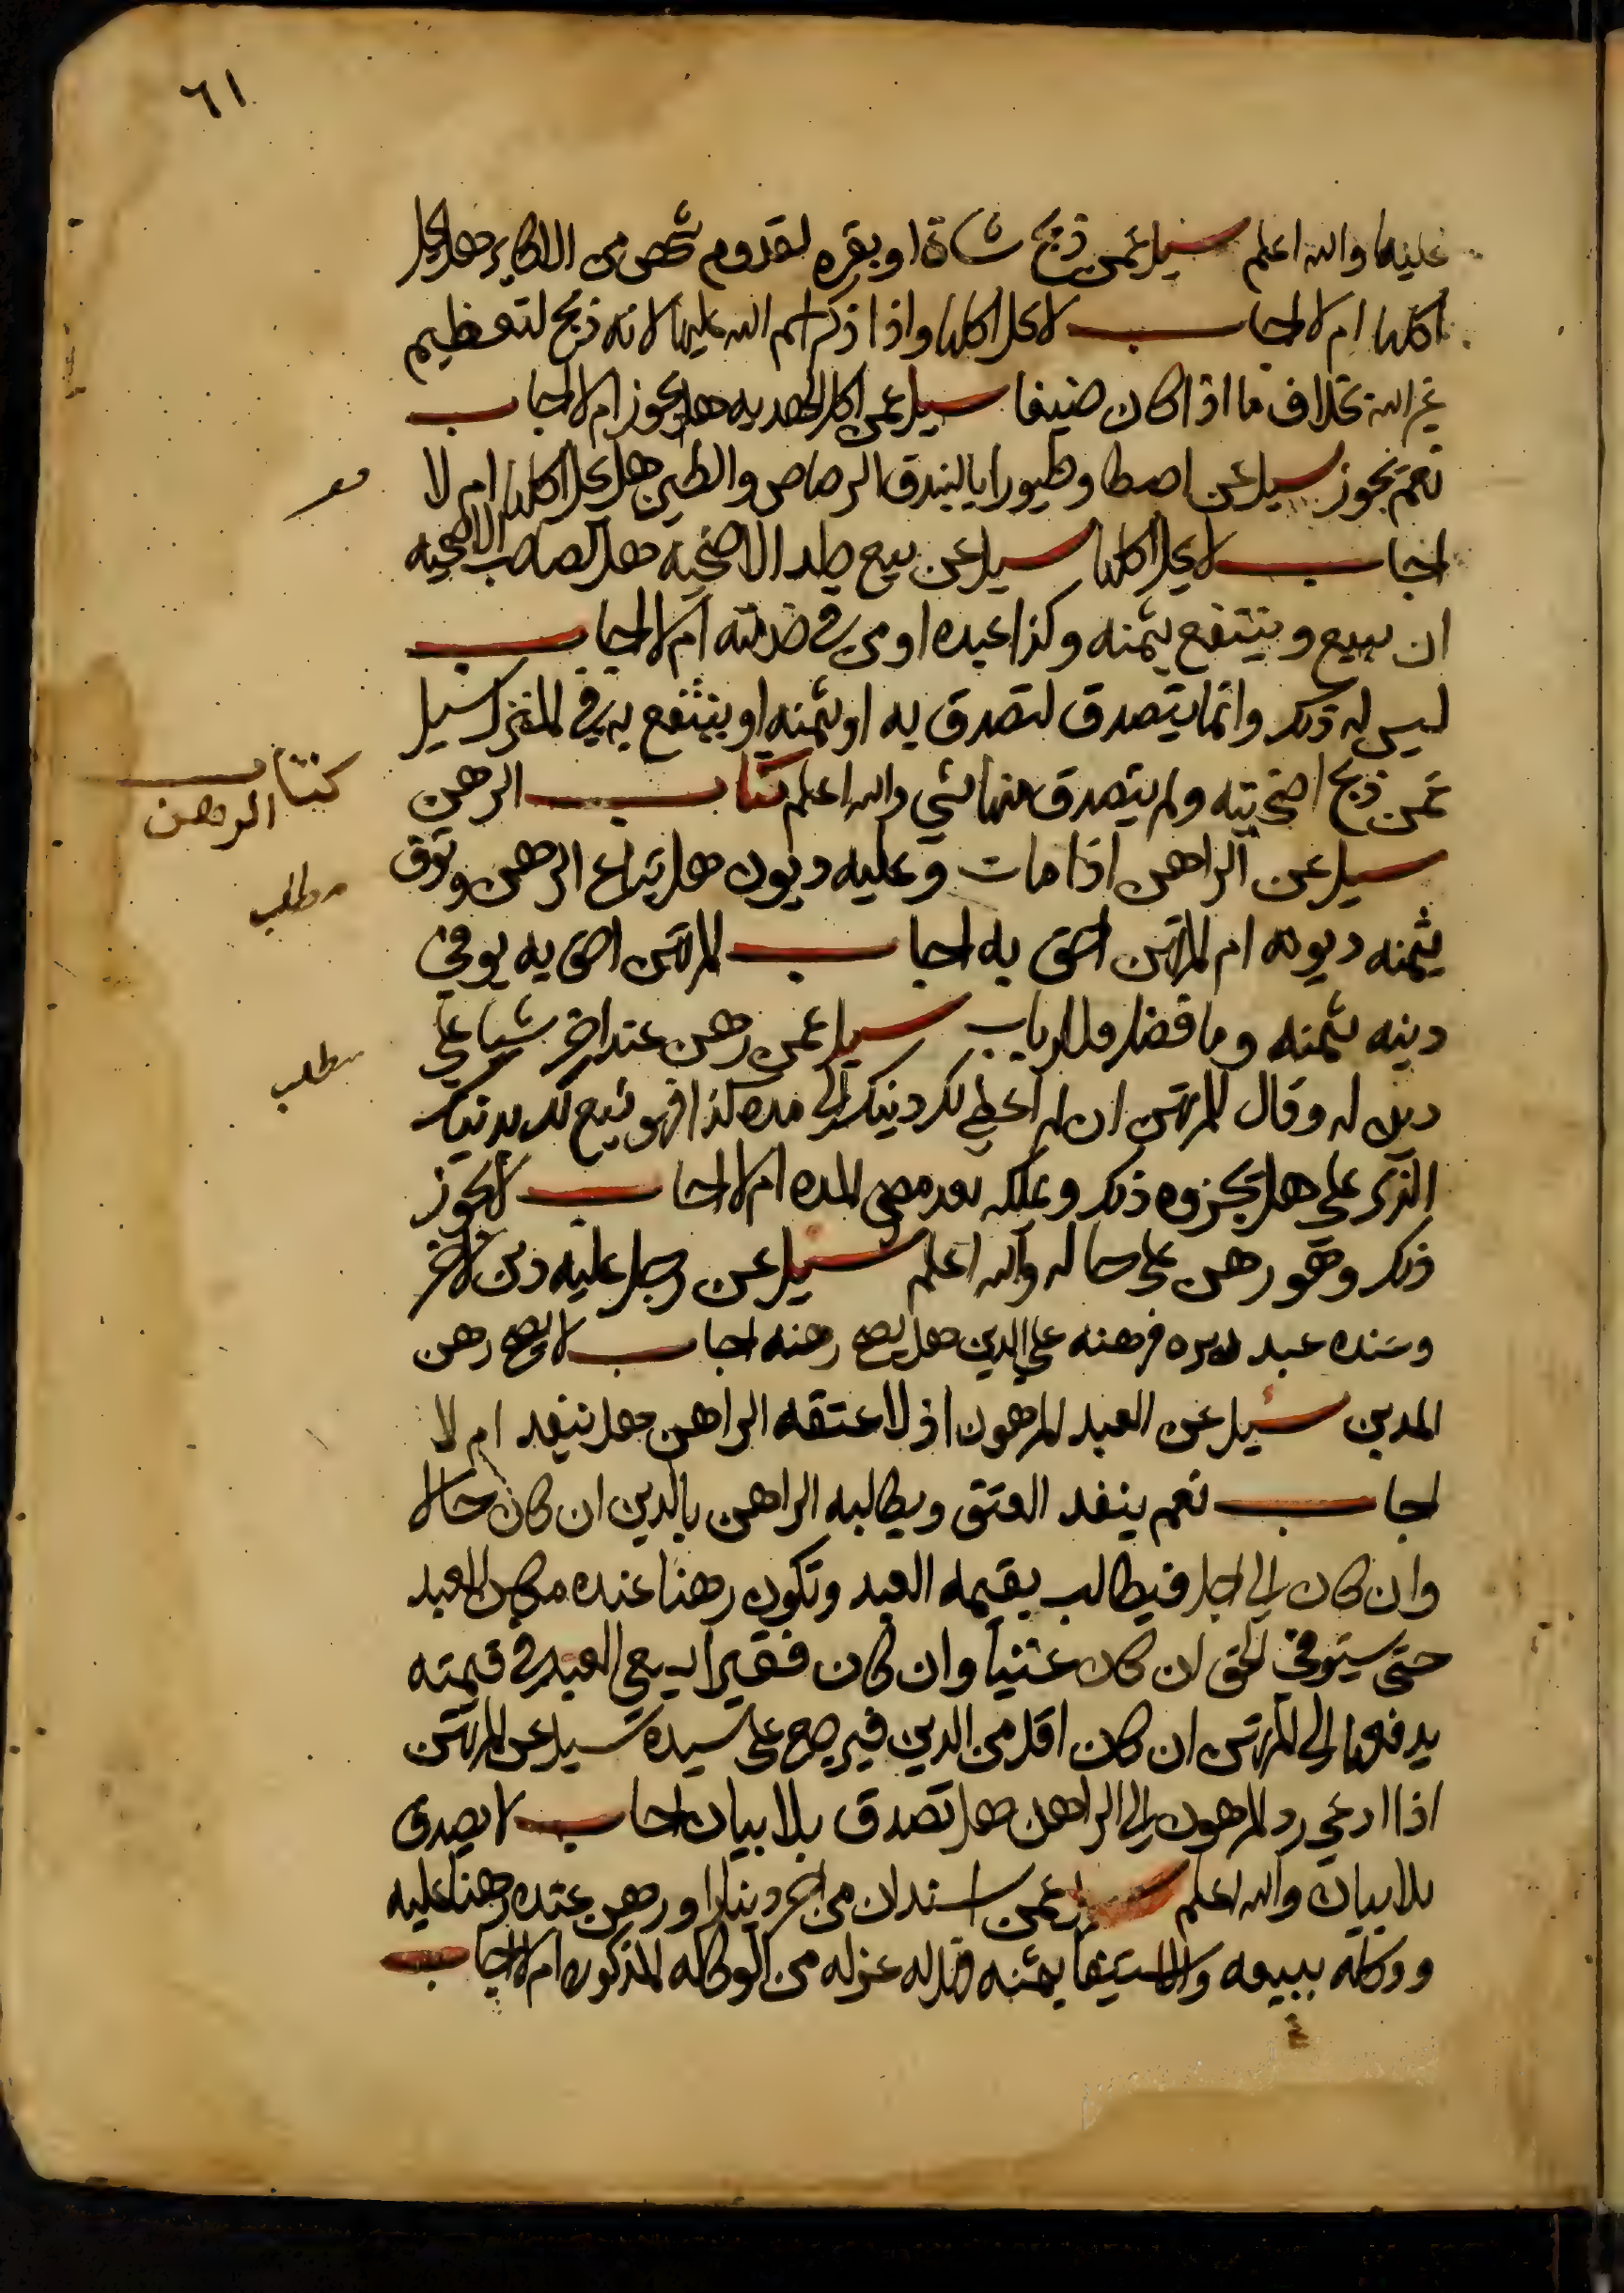 ٦١
عليها والله اعلم سيل عمن ذبح شاة او بقره لقدوم شخص من الاكابر هل يحل
اكلها ام لا اجاب لا يحل اكلها واذا ذكر اسم الله عليها لانه ذبح لتعظيم
غير الله بخلاف ما اذا كان ضيفا سيل عن اكل الهديه هل يجوز ام لا اجاب
نعم يجوز سيل عن اصطاد طيورا بالبندق الرصاص والطين هل يحل اكلها ام لا
اجاب لا يحل اكلها سيل عن بيع جلد الاضحيه هل لصاحب الاضحيه
ان يبيع وينتفع بثمنه وكذا عبده او من في خدمته ام لا اجاب
ليس له ذلك وانما يتصدق لتصدق به او بثمنه او ينتفع به في المنزل سيل
عمن ذبح اضحيته ولم يتصدق منها بشي والله اعلم كتاب الرهن
كتاب
الرهن
سيل عن الراهن اذا مات وعليه ديون هل يباع الرهن وتوفى
مطلب
بثمنه ديونه ام المرتهن احق به اجاب المرتهن احق به يوفي
دينه بثمنه وما فضل فللارباب سيل عمن رهن عند اخر شيا علي
مطلب
دين له وقال للمرتهن ان لم اعطي لك دينك الى مده كذا فهو بيع لك بدينك
الذي علي هل يجزوه ذلك ويملكه بعد مضي المده ام لا اجاب لا يجوز
ذلك وهو رهن على حاله والله اعلم سيل عن رجل عليه دين لاخر
وعنده عبد مدبره فرهنه علي الدين هل يصح رهنه اجاب لا يصح رهن
المدبر سيل عن العبد المرهون اذ لاعتقه الراهن هل ينفد ام لا
اجاب نعم ينفد العتق ويطالبه الراهن بالدين ان كان حالا
وان كان الى اجل فيطالب بقيمه العبد وتكون رهنا عنده مكان العبد
حتى يستوفي الحق ان كان غنيا وان كان فقيرا يسعي العبد في قيمته
يدفعها الى المرتهن ان كان اقل من الدين فيرجع على سيده سيل عن المرتهن
اذا ادعي رد المرهون الى الراهن هل تصدق بلا بيان اجاب لا يصدق
بلا بيان والله اعلم سيل عمن استدان من اخر دينارا ورهن عنده رهنا عليه
ووكله ببيعه والاستيفا بثمنه هل له عزله من الوكاله المذكوره ام لا اجاب